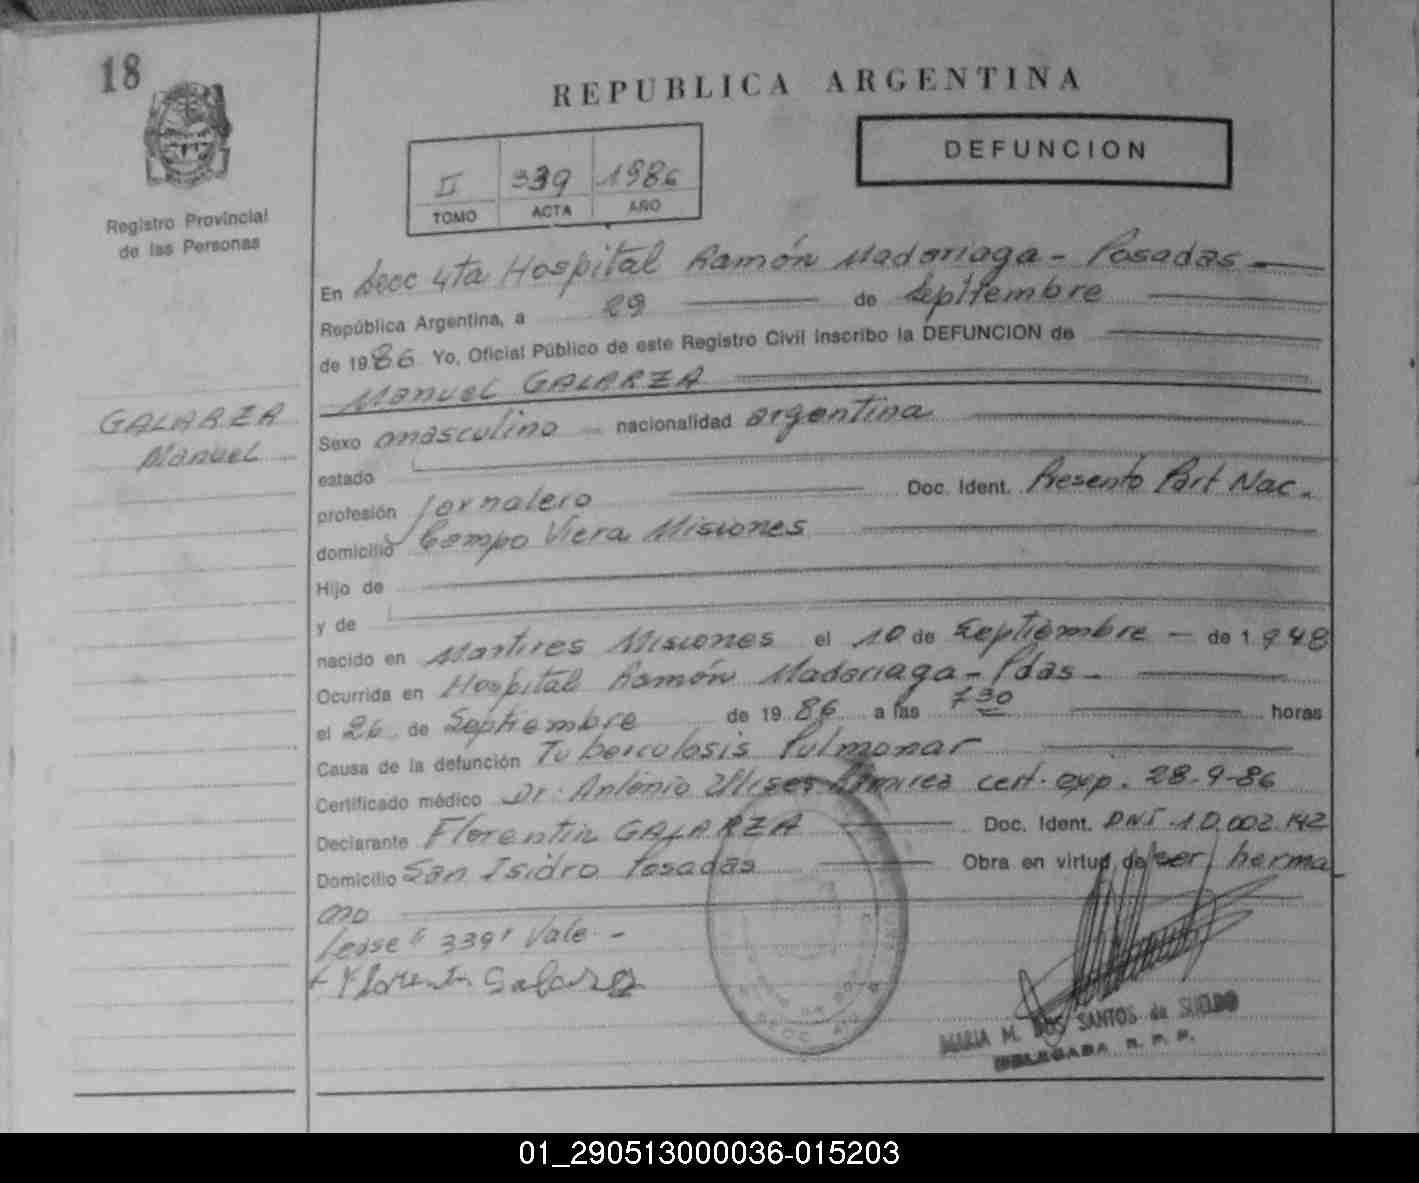 18
REPUBLICA ARGENTINA
DEFUNCION
II 339 1986
TOMO ACTA AÑO
Registro Provincial
de las Personas
GALARZA
Manuel
En Secc 4ta Hospital Ramón Madariaga - Posadas -
República Argentina, a 29 de Septiembre
de 1986 Yo, Oficial Público de este Registro Civil inscribo la DEFUNCION de
Manuel GALARZA
Sexo masculino nacionalidad argentina
estado
profesión Jornalero Doc. Ident. Presento Part Nac.
domicilio Campo Viera Misiones
Hijo de
y de
nacido en Martires Misiones el 10 de Septiembre - de 1.948
Ocurrida en Hospital Ramón Madariaga - Pdas -
el 26 de Septiembre de 1986 a las 7 30 horas
Causa de la defunción Tuberculosis Pulmonar
Certificado médico Dr. Antonio Ulises Ramirez cert. exp. 28-9-86
Declarante Florentin GALARZA Doc. Ident. DNI 10.002.142
Domicilio San Isidro Posadas Obra en virtud de ser herma
no
Lease "339" Vale -
Florentin Galarza
MARIA M. DOS SANTOS de SUELDO
DELEGADA R. P. P.
01_290513000036-015203